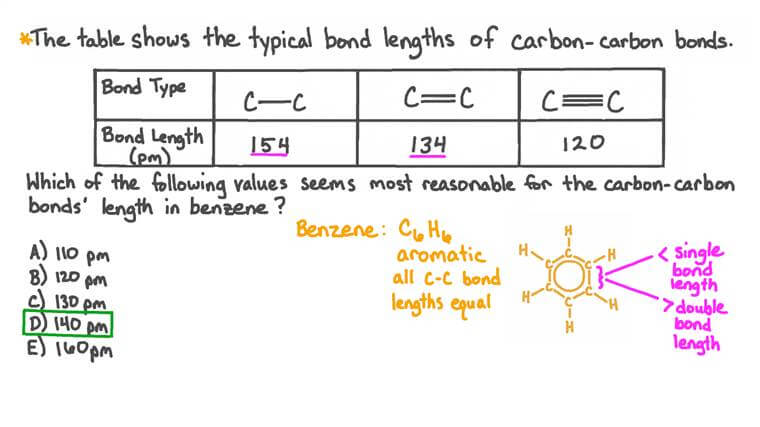 *The table shows the typical bond lengths of carbon-carbon bonds.
Bond Type C—C C=C C≡C
Bond Length (pm) 154 134 120
Which of the following values seems most reasonable for the carbon-carbon
bonds' length in benzene?
A) 110 pm
B) 120 pm
C) 130 pm
D) 140 pm
E) 160 pm
Benzene: C₆H₆
aromatic
all C-C bond
lengths equal
H
H C H
C C
C C
H C H
H
< single
bond
length
> double
bond
length